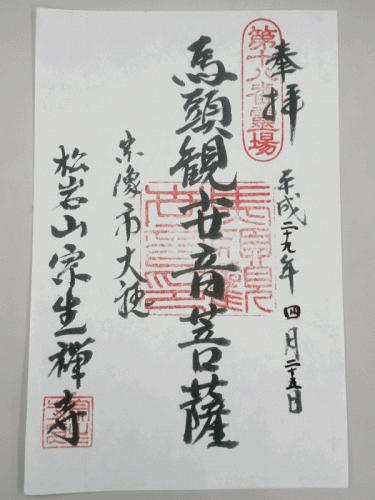 奉拝
第十八番霊場
平成二十九年四月二十五日
馬頭観世音菩薩
宗像市大穂
松岩山宗生禅寺